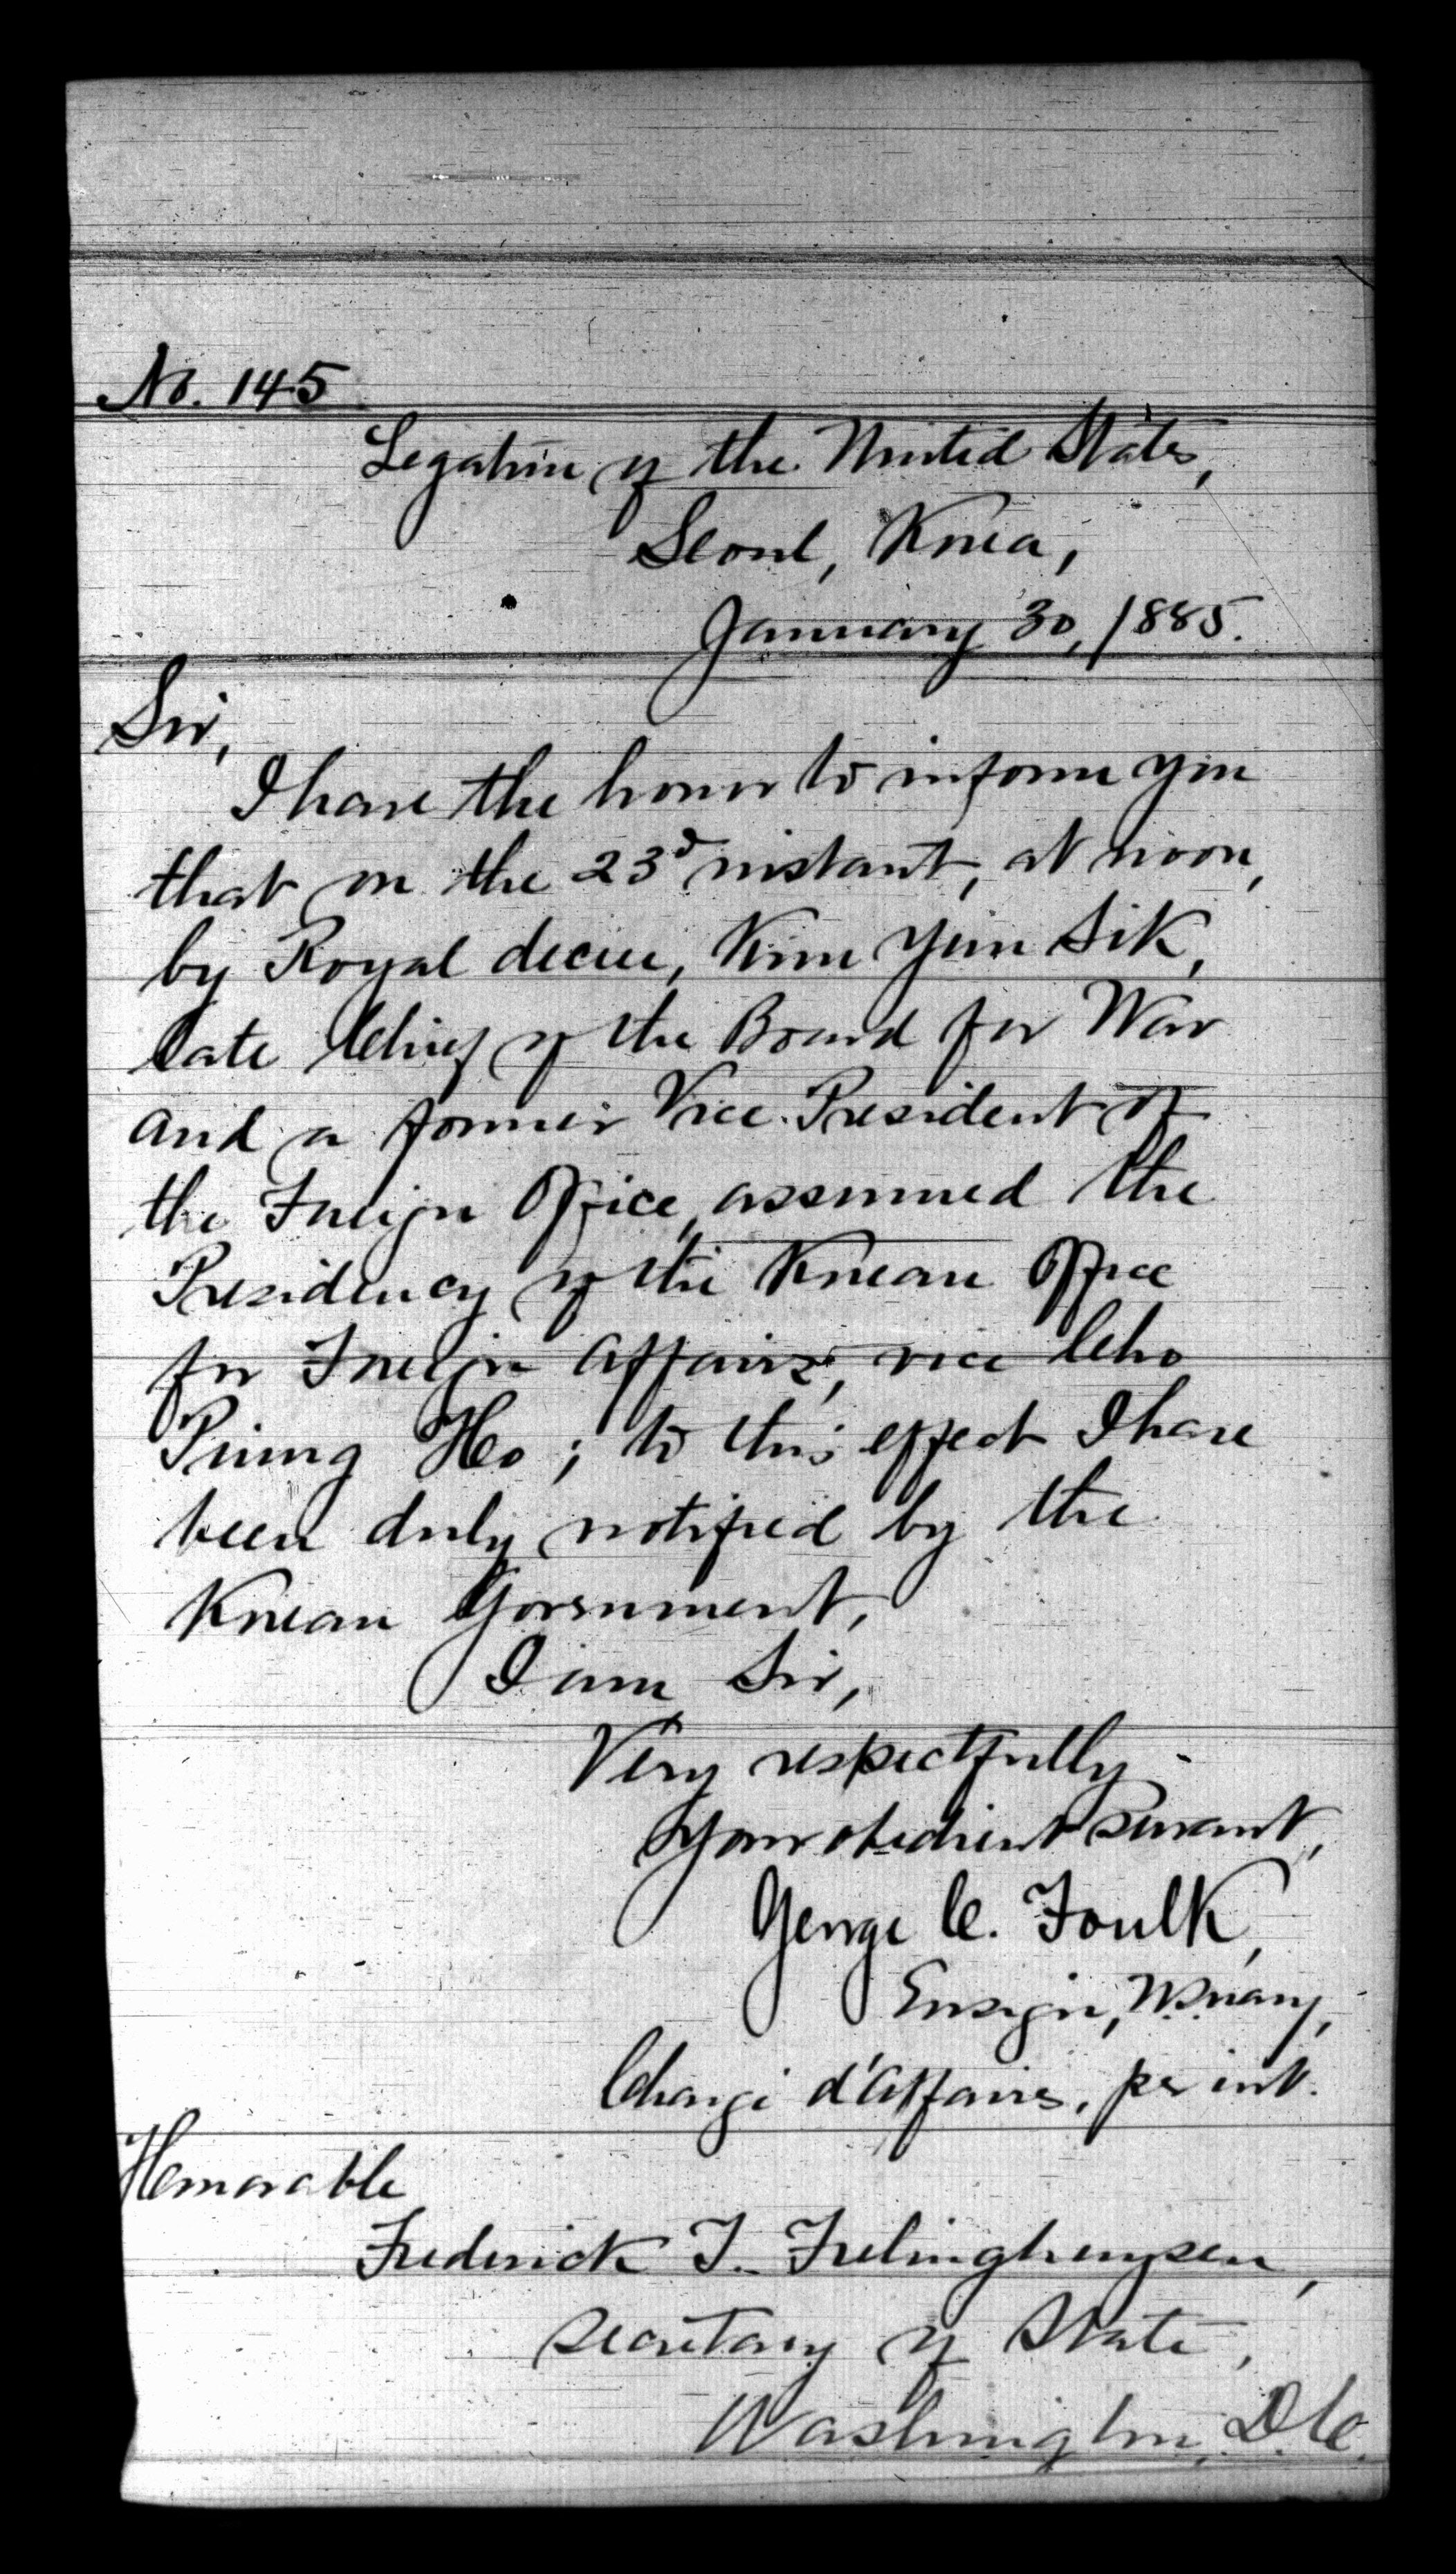 No. 145
Legation of the United States,
Seoul, Korea,
January 30, 1885.
Sir,
I have the honor to inform you
that on the 23d instant, at noon,
by Royal decree, Kim Yun Sik,
late Chief of the Board for War
and a former Vice President of
the Foreign Office, assumed the
Presidency of the Korean Office
for Foreign Affairs, vice Cho
Piung Ho; to this effect I have
been duly notified by the
Korean Government,
I am Sir,
Very respectfully
Your obedient servant,
George C. Foulk,
Ensign, U.S. Navy,
Chargé d'Affaires, per int.
Honorable
Frederick T. Frelinghuysen,
Secretary of State,
Washington, D.C.